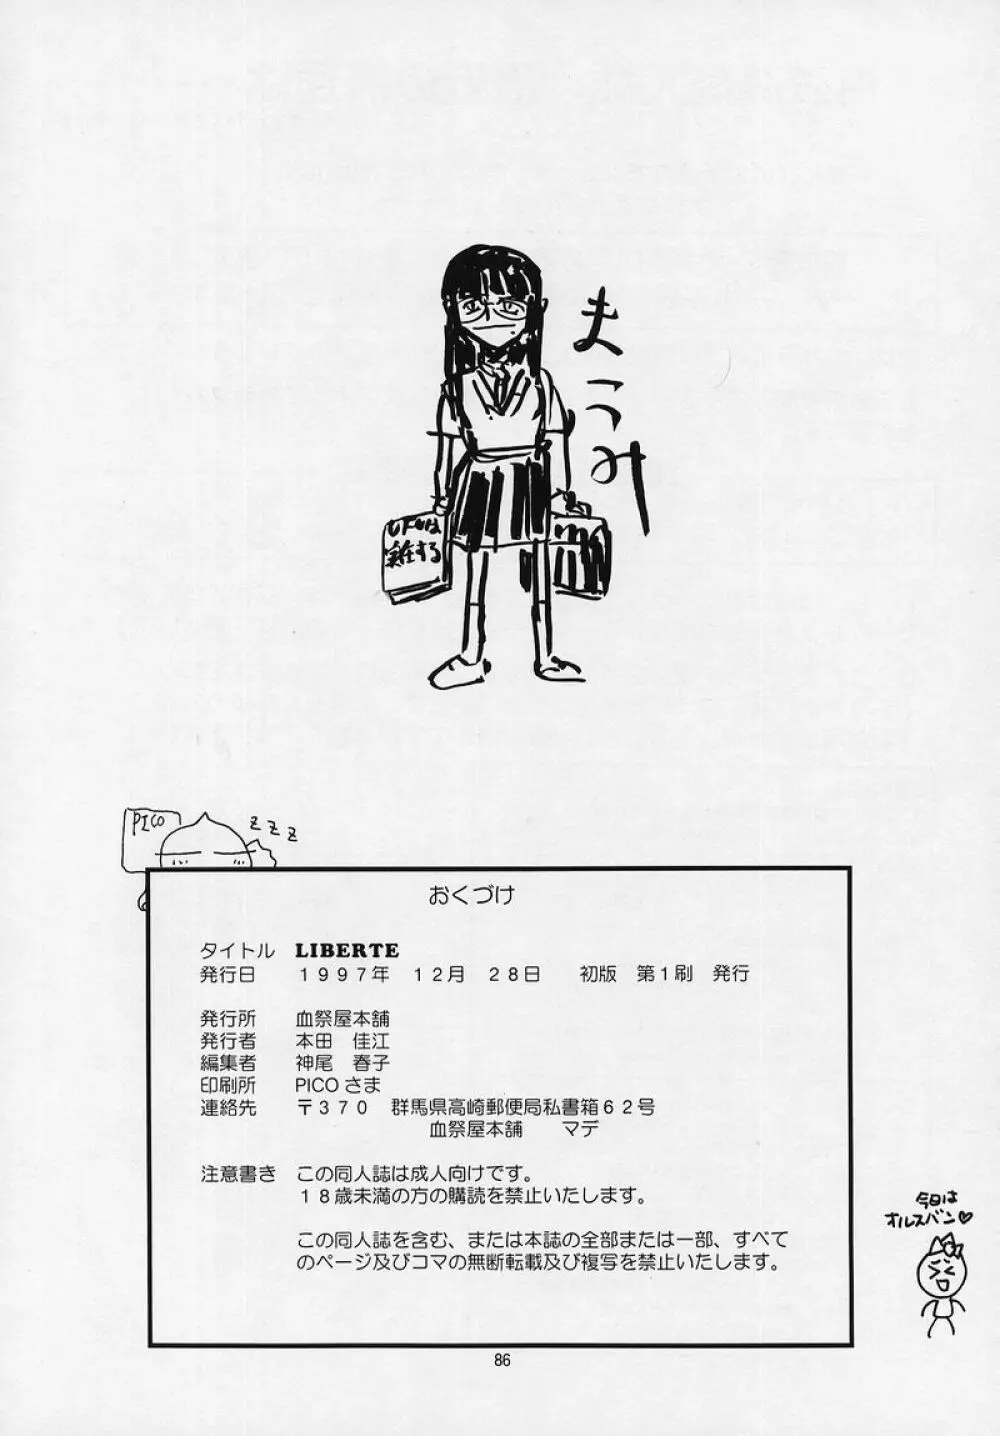 まこみ
実在する
PICO
z z z
おくづけ
タイトル LIBERTE
発行日 1997年 12月 28日 初版 第1刷 発行
発行所 血祭屋本舗
発行者 本田 佳江
編集者 神尾 春子
印刷所 PICOさま
連絡先 〒370 群馬県高崎郵便局私書箱62号
血祭屋本舗 マデ
注意書き この同人誌は成人向けです。
18歳未満の方の購読を禁止いたします。
この同人誌を含む、または本誌の全部または一部、すべて
のページ及びコマの無断転載及び複写を禁止いたします。
今日は
オルスバン♡
86